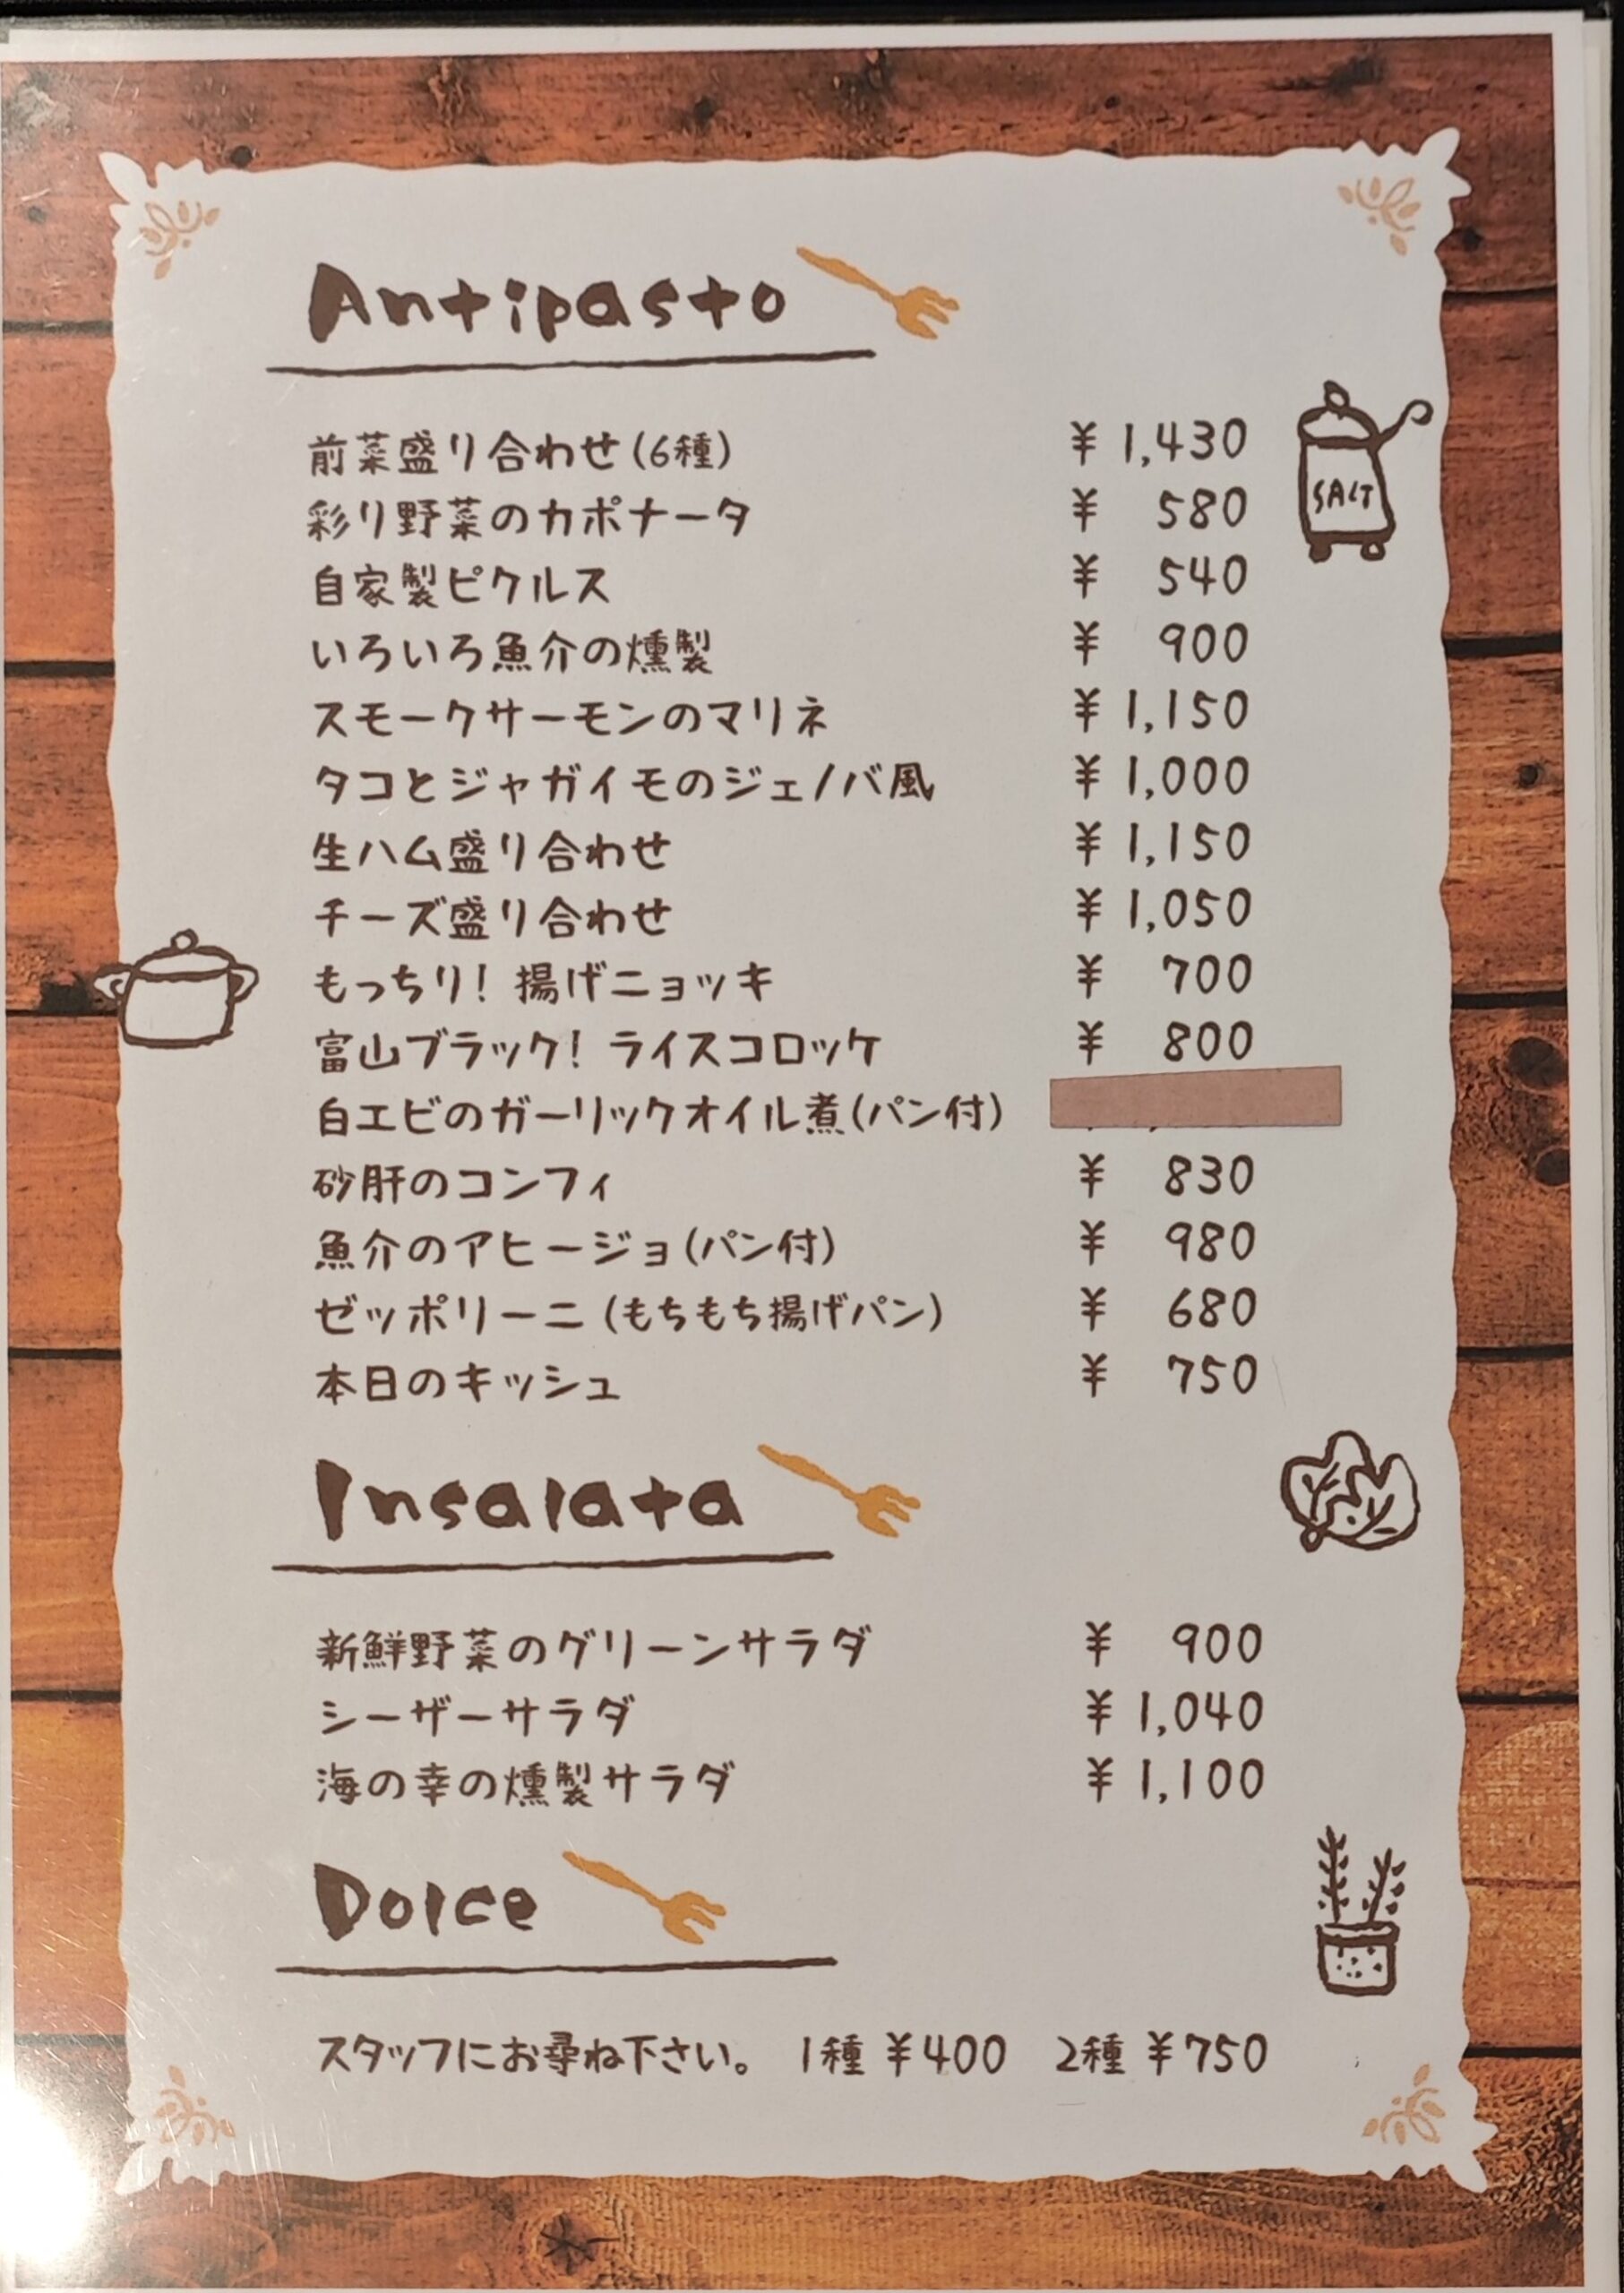 Antipasto
前菜盛り合わせ(6種) ¥1,430
SALT
彩り野菜のカポナータ ¥580
自家製ピクルス ¥540
いろいろ魚介の燻製 ¥900
スモークサーモンのマリネ ¥1,150
タコとジャガイモのジェノバ風 ¥1,000
生ハム盛り合わせ ¥1,150
チーズ盛り合わせ ¥1,050
もっちり! 揚げニョッキ ¥700
富山ブラック! ライスコロッケ ¥800
白エビのガーリックオイル煮(パン付)
砂肝のコンフィ ¥830
魚介のアヒージョ(パン付) ¥980
ゼッポリーニ (もちもち揚げパン) ¥680
本日のキッシュ ¥750
Insalata
新鮮野菜のグリーンサラダ ¥900
シーザーサラダ ¥1,040
海の幸の燻製サラダ ¥1,100
Dolce
スタッフにお尋ね下さい。 1種 ¥400 2種 ¥750